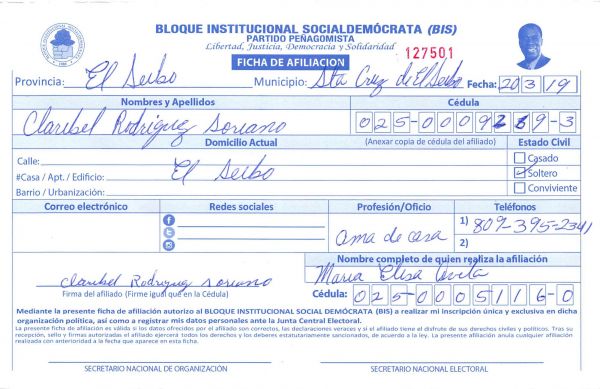 BLOQUE INSTITUCIONAL SOCIALDEMÓCRATA (BIS)
PARTIDO PEÑAGOMISTA
Libertad, Justicia, Democracia y Solidaridad
FICHA DE AFILIACION
127501
Provincia: El Seibo Municipio: Sta Cruz de El Seibo Fecha: 20 3 19
Nombres y Apellidos Cédula
Claribel Rodriguez Soriano 025-0009 9-3
Domicilio Actual (Anexar copia de cédula del afiliado) Estado Civil
Calle: Casado
#Casa / Apt. / Edificio: El Seibo Soltero
Barrio / Urbanización: Conviviente
Correo electrónico Redes sociales Profesión/Oficio Teléfonos
Ama de casa 1) 809-395-2341
2)
Nombre completo de quien realiza la afiliación
Claribel Rodriguez Soriano Maria Elisa
Firma del afiliado (Firme igual que en la Cédula) Cédula: 025-0005116-0
Mediante la presente ficha de afiliación autorizo al BLOQUE INSTITUCIONAL SOCIAL DEMÓCRATA (BIS) a realizar mi inscripción única y exclusiva en dicha
organización política, así como a registrar mis datos personales ante la Junta Central Electoral.
La presente ficha de afiliación es válida si los datos ofrecidos por el afiliado son correctos, las declaraciones veraces y si el afiliado tiene el disfrute de sus derechos civiles y políticos. Tras su
recepción, sello y firmas autorizadas el afiliado ejercerá todos los derechos y los deberes estatutariamente sancionados, de acuerdo a la ley. La presente afiliación anula cualquier afiliación
realizada con anterioridad a la fecha que aparece en esta ficha.
SECRETARIO NACIONAL DE ORGANIZACIÓN SECRETARIO NACIONAL ELECTORAL